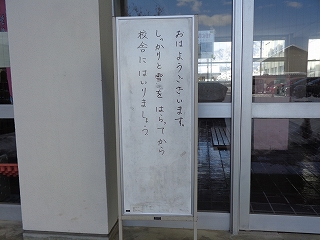 おはようございます。
しっかりと雪をはらってから
校舎にはいりましょう